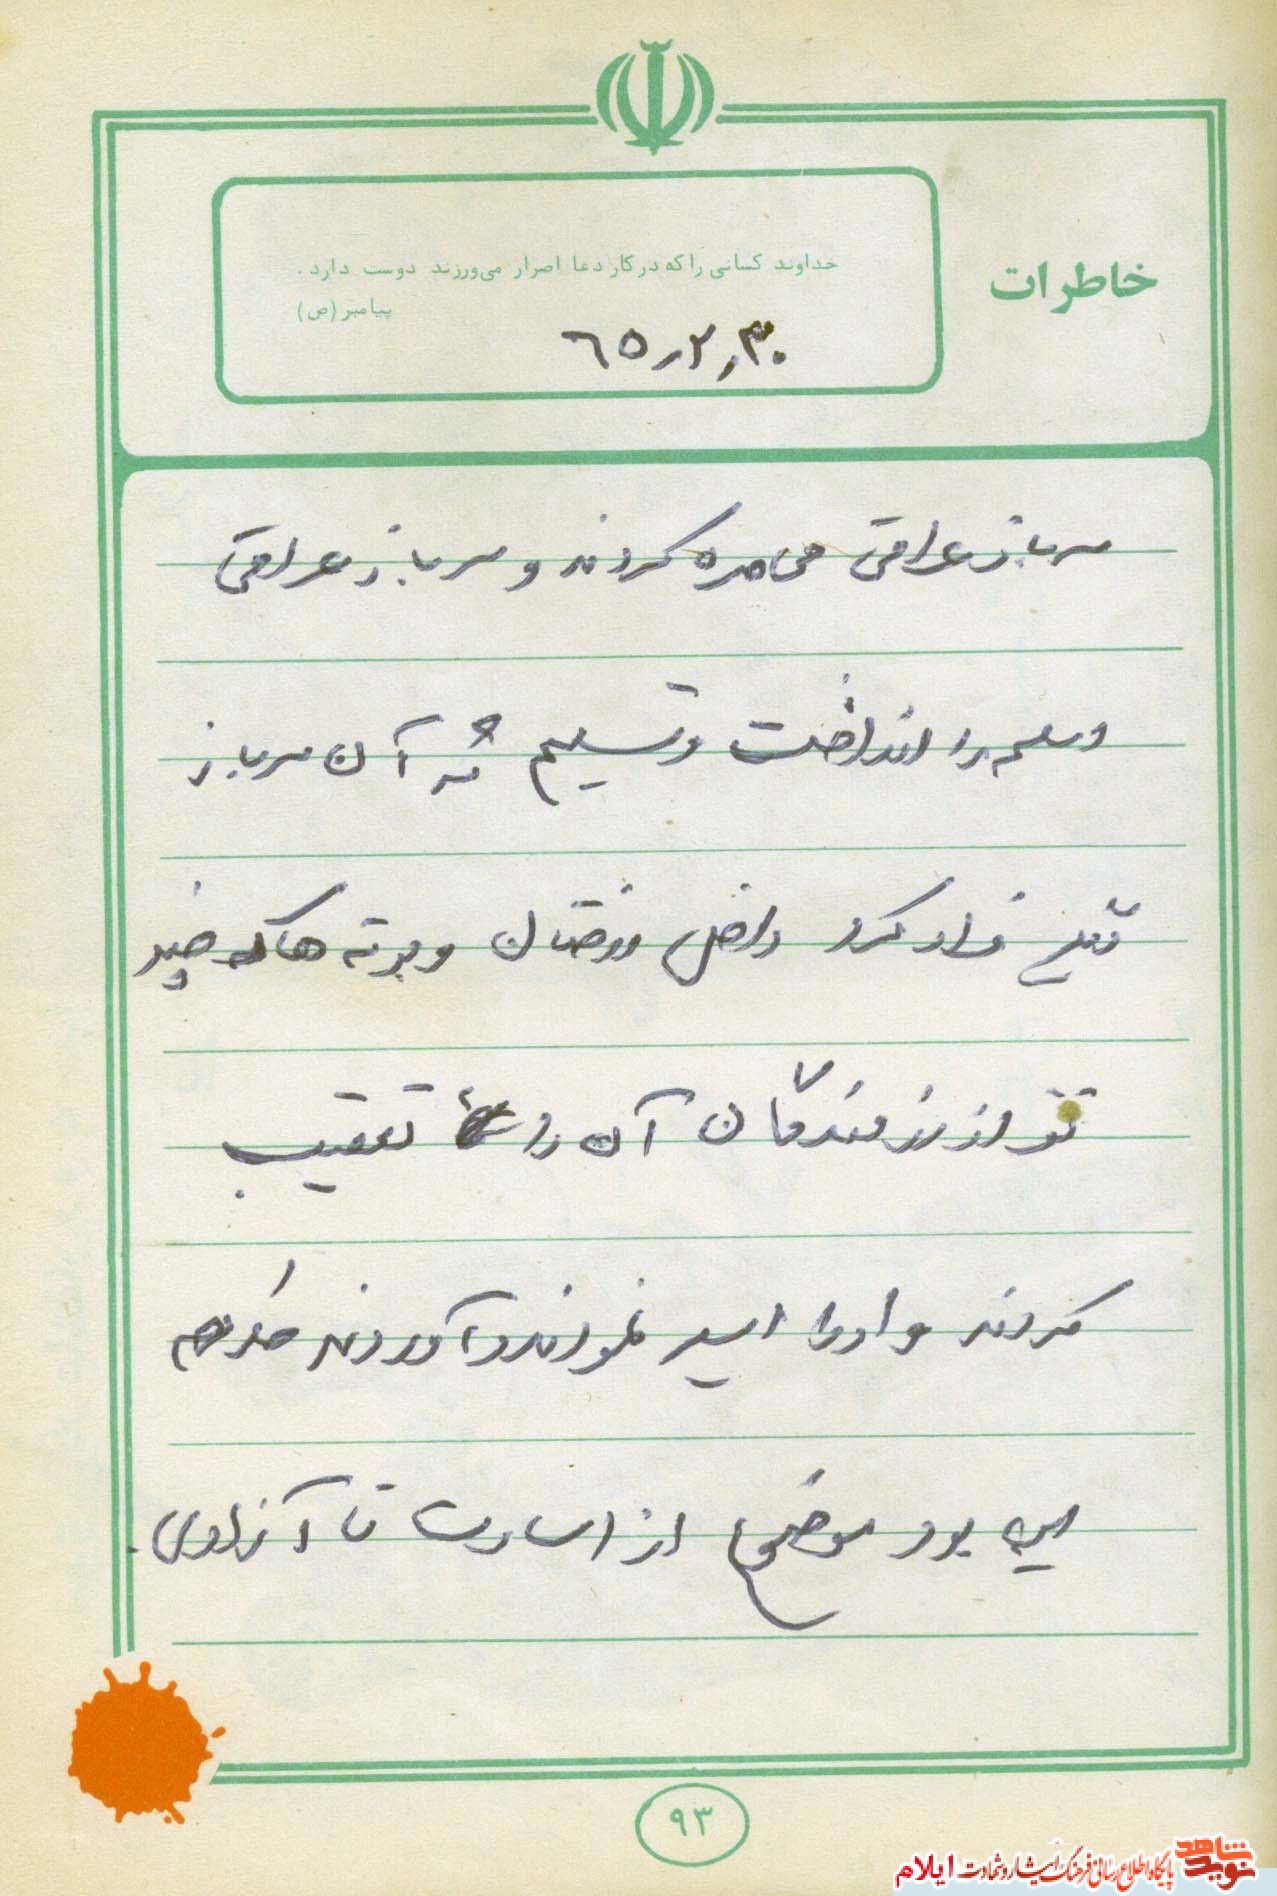 خاطرات
خداوند کسانی را که در کار دعا اصرار می‌ورزند دوست دارد.
پیامبر (ص)
۶۵٫۲٫۳۰
سرباز عراقی محاصره کردند و سرباز عراقی
را انداخت و تسلیم شد آن سرباز
فرار کرد داخل درختان و بوته ها که چند
نفر از رزمندگان آن را تعقیب
کردند و او را اسیر نمودند و آوردند
این بود موضوع از اسارت تا آزادی.
۹۳
نوید شاهد
پایگاه اطلاع رسانی فرهنگ ایثار و شهادت ایلام